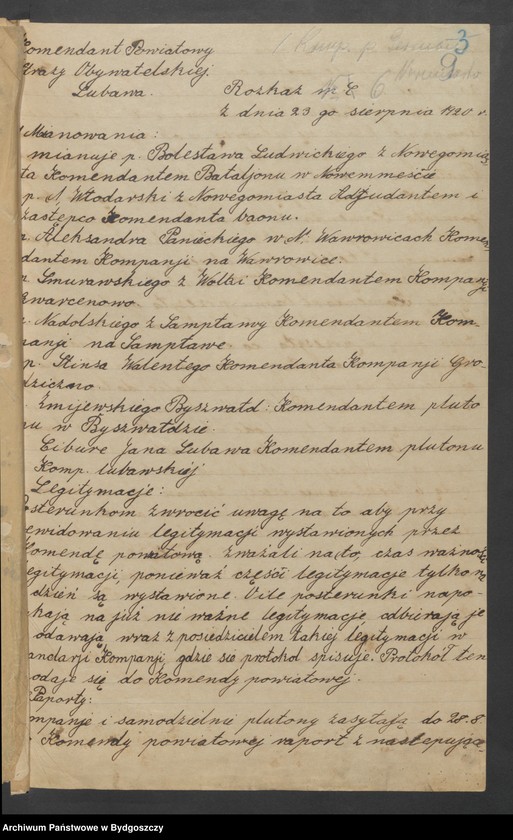 Komendant Powiatowy
Straży Obywatelskiej
Lubawa.
3
Rozkaz nr 6
z dnia 23 go sierpnia 1920 r.
Mianowania:
mianuje p. Bolesława Ludwickiego z Nowegomia
ta Komendantem Bataljonu w Nowemmieście
p. N. Włodarski z Nowegomiasta Adjudantem i
zastępco Komendanta baonu.
p. Aleksandra Panieckiego w N. Wawrowicach Komen
dantem Kompanji na Wawrowice.
p. Smurawskiego z Wolki Komendantem Kompanji
Zwarcenowo
p. Nadolskiego z Sampławy Komendantem Kom-
panji na Sampławe
p. Stinsa Walentego Komendanta Kompanji Gro-
dziczno
Żmijewskiego Byszwałd: Komendantem pluto
nu w Byszwałdzie.
Cibure Jana Lubawa Komendantem plutonu
Komp. lubawskiej
Legitymacje:
Posterunkom zwrocić uwagę na to aby przy
rewidowaniu legitymacji wystawionych przez
Komendę powiatową. zważali na to, czas ważnoś
legitymacji, ponieważ części legitymacje tylko na
dzień są wystawione. O ile posterunki napo-
tkają na już nie ważne legitymacje, odbierają je
i oddawają wraz z posiedzicielem takiej legitymacji w
kancelarji Kompanji gdzie sie protokol spisuje. Protokół ten
podaje się do Komendy powiatowej.
Raporty:
Kompanje i samodzielni plutony zasyłają do 28.8.
Komendy powiatowej raport z następują
Archiwum Państwowe w Bydgoszczy